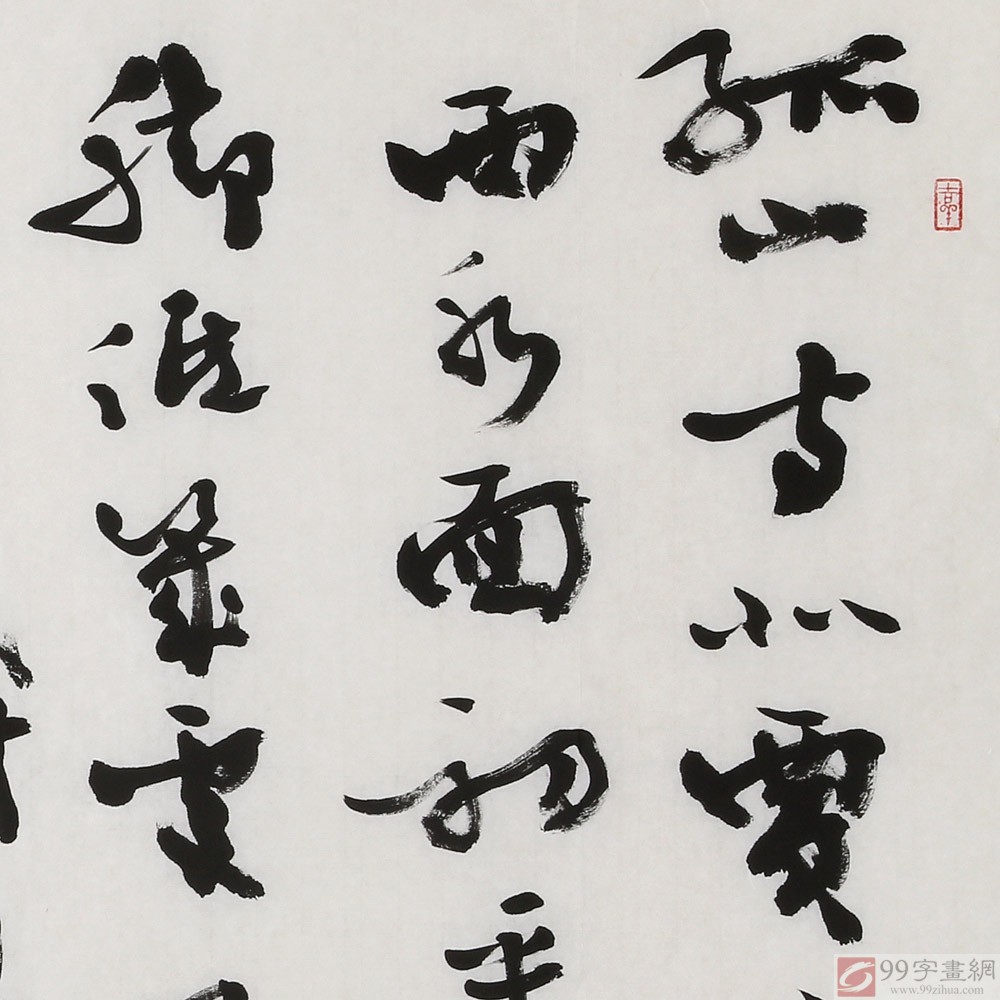 孤山寺北賈
西水面初平
脚低幾處
99字畫網
www.99zihua.com